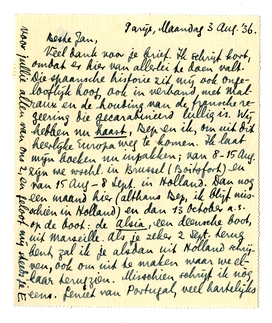 Parijs, Maandag 3 Aug. '36.
Beste Jan,
Veel dank voor je brief. Ik schrijf kort,
omdat er hier van allerlei te doen valt.
De spaansche historie zit mij ook onge-
looflijk hoog, ook in verband, met Mal-
raux en de houding van de fransche re-
geering die gecarabineerd lullig is. Wij
hebben nu haast, Bep en ik, om uit dit
heerlijke Europa weg te komen. Ik laat
mijn boeken nu inpakken; van 8-15 Aug.
zijn we wsch. in Brussel (Boitsfort) en
van 15 Aug - 8 Sept. in Holland. Dan nog
een maand hier (althans Bep, ik blijf mis-
schien in Holland) en dan 13 October a.s.
op de boot: de Alsia, een deensche boot,
uit Marseille. Als je zeker 2 Sept. terug
bent, zal ik je alsdan uit Holland schrij-
ven, ook om uit te maken waar we el-
kaar terugzien. Misschien schrijf ik nog
eens. Geniet van Portugal, veel hartelijks
voor jullie allen van ons 2, en geloof mij steeds je E.